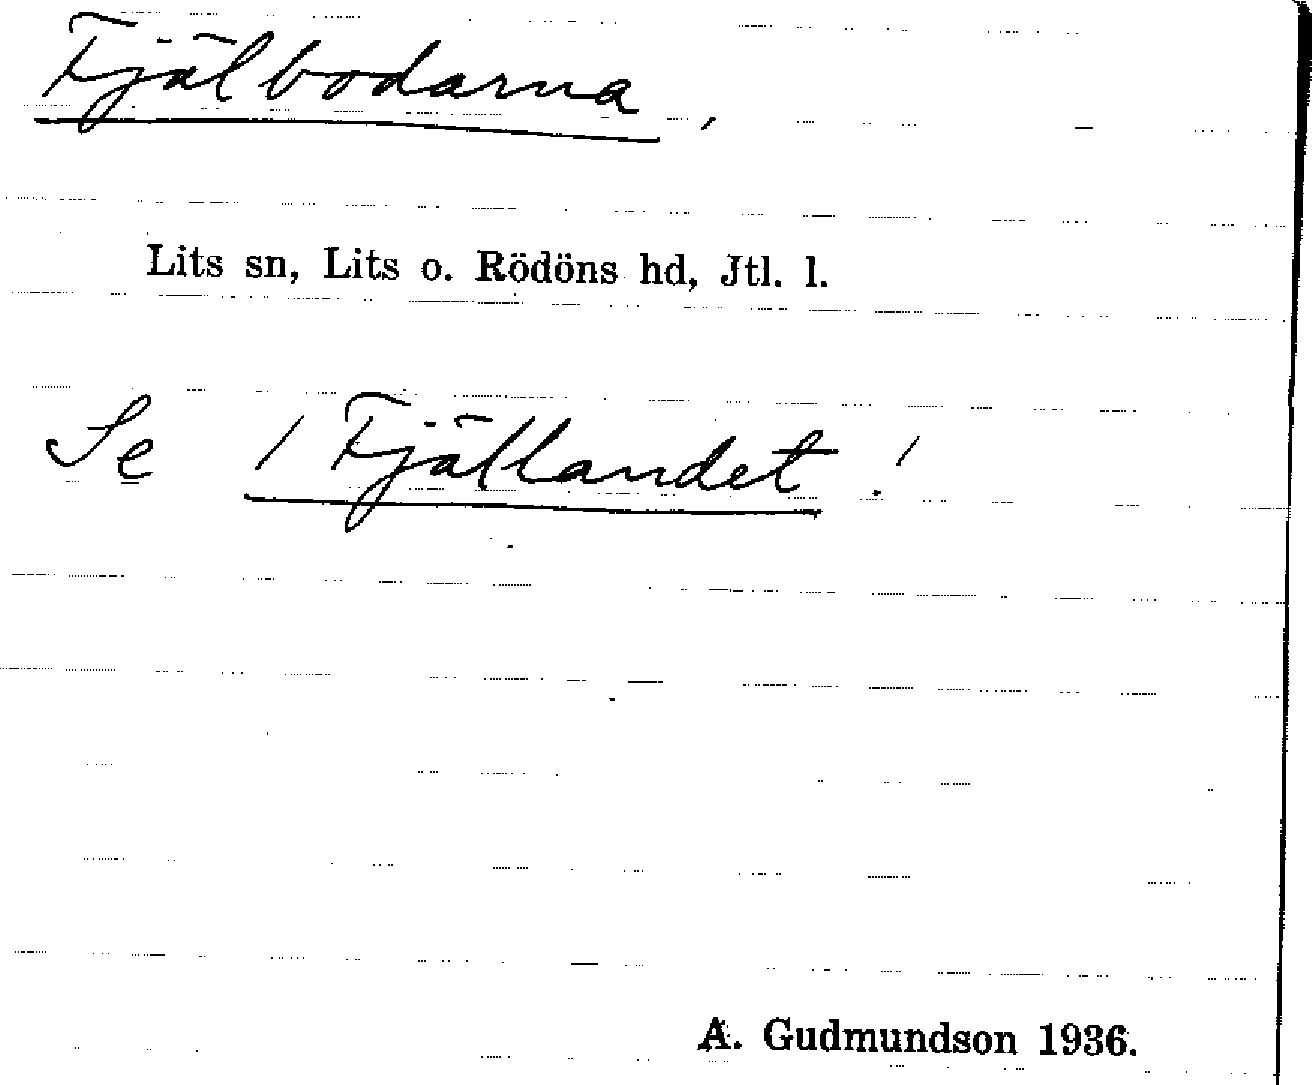 Fjälbodarna,
Lits sn, Lits o. Rödöns hd, Jtl. l.
Se / Fjällandet. /
A. Gudmundson 1936.